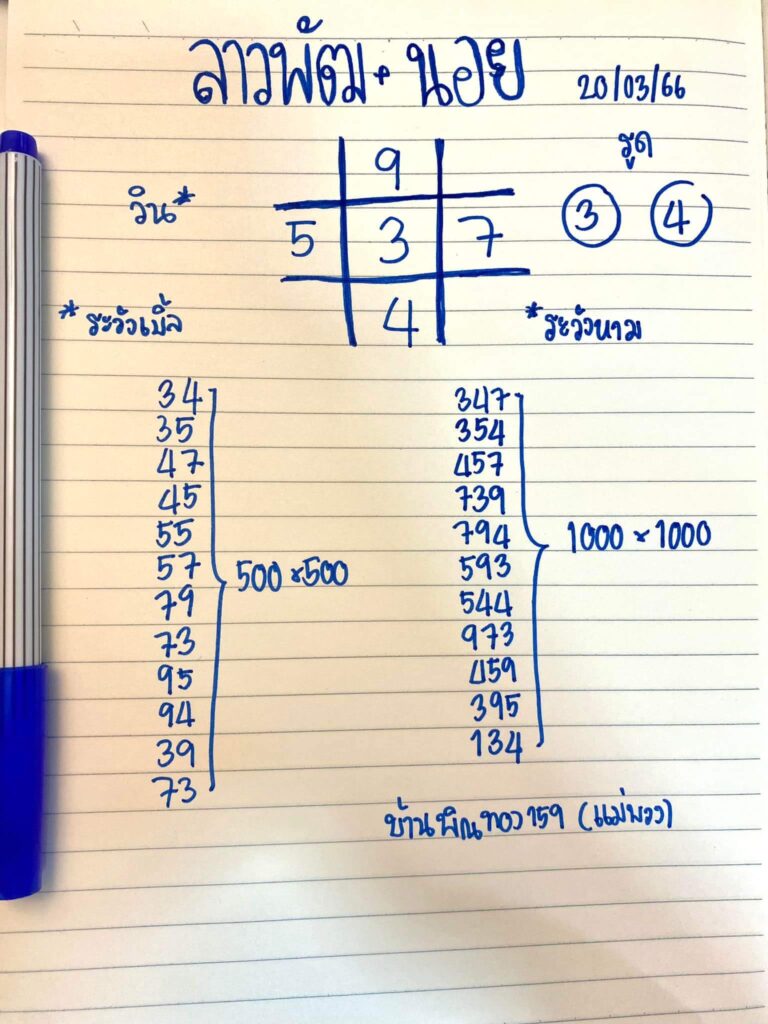 ลาวพัฒ + นอย 20/03/66
รูด
วิน*
9
5 3 7
4
3 4
*ระวังเบิ้ล
*ระวังหาม
34
35
47
45
55
57
79
73
95
94
39
73
500×500
347
354
457
739
794
593
544
973
459
395
134
1000×1000
บ้านพิณทอง 159 (แม่พวง)